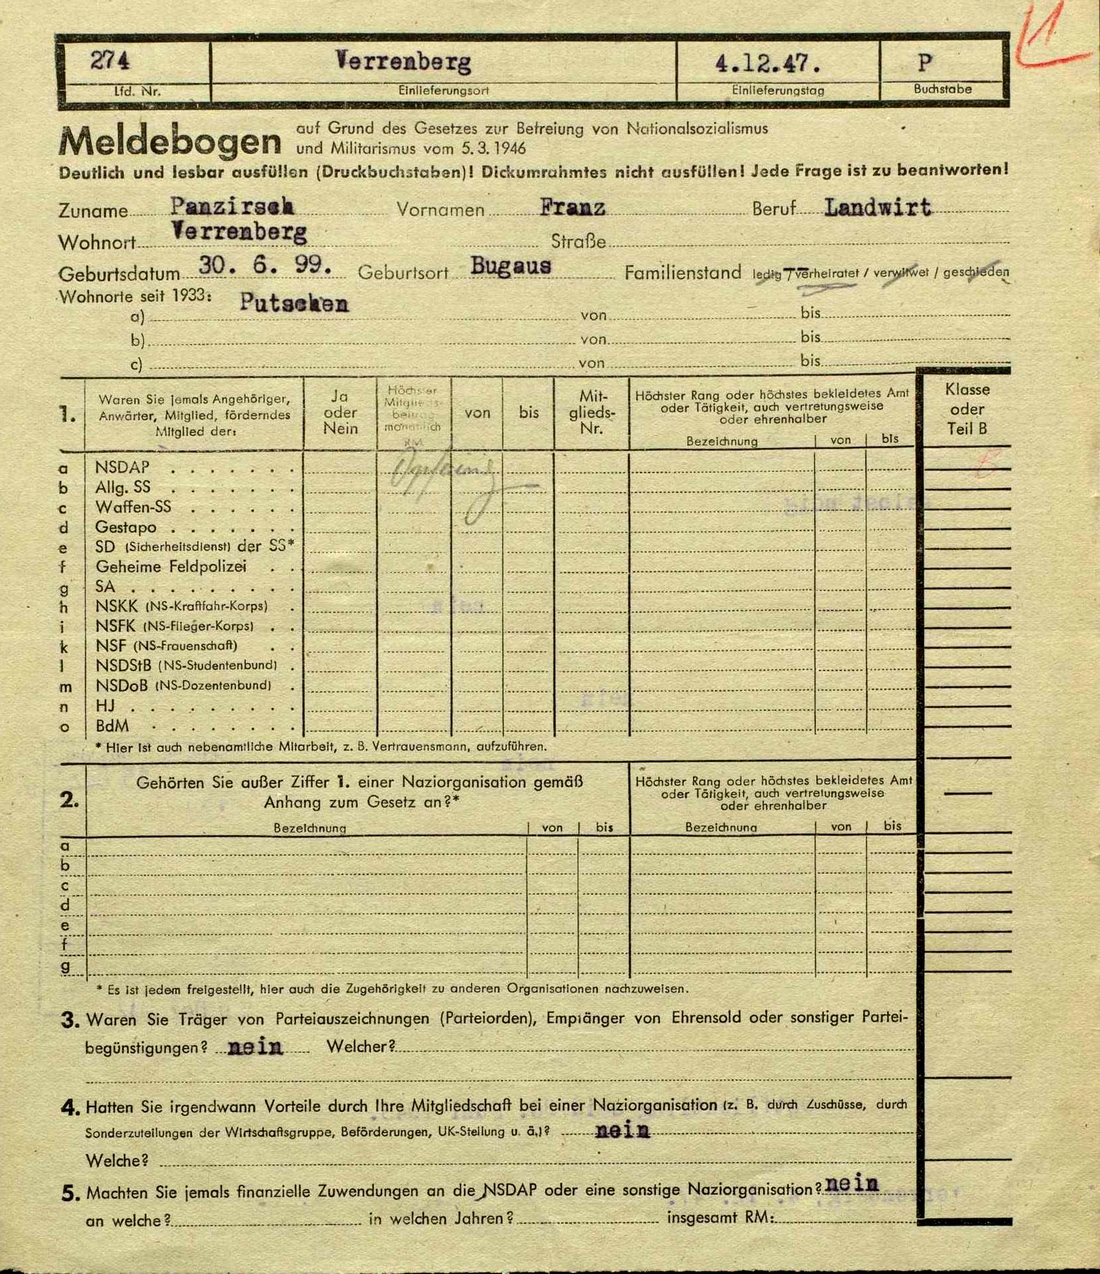 274 Verrenberg 4.12.47. P
Lfd. Nr. Einlieferungsort Einlieferungstag Buchstabe
Meldebogen auf Grund des Gesetzes zur Befreiung von Nationalsozialismus
und Militarismus vom 5. 3. 1946
Deutlich und lesbar ausfüllen (Druckbuchstaben)! Dickumrahmtes nicht ausfüllen! Jede Frage ist zu beantworten!
Zuname Panzirsch Vornamen Franz Beruf Landwirt
Wohnort Verrenberg Straße
Geburtsdatum 30. 6. 99. Geburtsort Bugaus Familienstand ledig / verheiratet / verwitwet / geschieden
Wohnorte seit 1933: Putschen
a) von bis
b) von bis
c) von bis
1. Waren Sie jemals Angehöriger, Anwärter, Mitglied, förderndes Mitglied der: Ja oder Nein Höchster Mitgliedsbeitrag monatlich RM. von bis Mitglieds-Nr. Höchster Rang oder höchstes bekleidetes Amt oder Tätigkeit, auch vertretungsweise oder ehrenhalber Klasse oder Teil B
Bezeichnung von bis
a NSDAP
b Allg. SS
c Waffen-SS
d Gestapo
e SD (Sicherheitsdienst) der SS*
f Geheime Feldpolizei
g SA
h NSKK (NS-Kraftfahr-Korps)
i NSFK (NS-Flieger-Korps)
k NSF (NS-Frauenschaft)
l NSDStB (NS-Studentenbund)
m NSDoB (NS-Dozentenbund)
n HJ
o BdM
* Hier ist auch nebenamtliche Mitarbeit, z. B. Vertrauensmann, aufzuführen.
2. Gehörten Sie außer Ziffer 1. einer Naziorganisation gemäß Anhang zum Gesetz an?* Höchster Rang oder höchstes bekleidetes Amt oder Tätigkeit, auch vertretungsweise oder ehrenhalber
Bezeichnung von bis Bezeichnung von bis
a
b
c
d
e
f
g
* Es ist jedem freigestellt, hier auch die Zugehörigkeit zu anderen Organisationen nachzuweisen.
3. Waren Sie Träger von Parteiauszeichnungen (Parteiorden), Empfänger von Ehrensold oder sonstiger Partei-
begünstigungen? nein Welcher?
4. Hatten Sie irgendwann Vorteile durch Ihre Mitgliedschaft bei einer Naziorganisation (z. B. durch Zuschüsse, durch
Sonderzuteilungen der Wirtschaftsgruppe, Beförderungen, UK-Stellung u. ä.)? nein
Welche?
5. Machten Sie jemals finanzielle Zuwendungen an die NSDAP oder eine sonstige Naziorganisation? nein
an welche? in welchen Jahren? insgesamt RM: